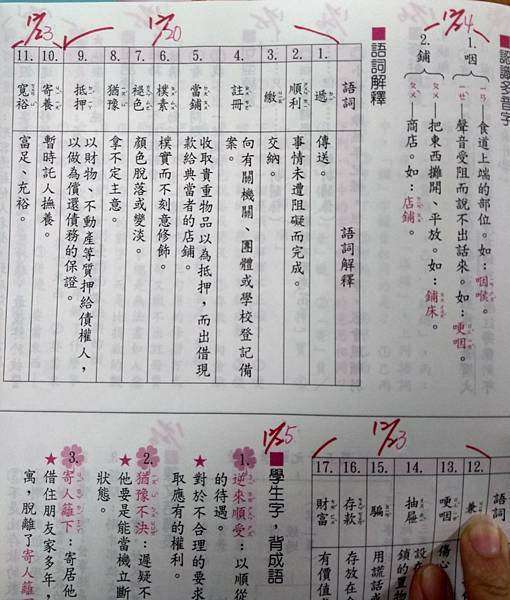 認識多音字
12/24
1. 咽
ㄧㄢ 食道上端的部位。如：咽喉。
ㄧㄝˋ 聲音受阻而說不出話來。如：哽咽。
2. 鋪
ㄆㄨ 把東西攤開、平放。如：鋪床。
ㄆㄨˋ 商店。如：店鋪。
語詞解釋
12/20
12/23
語詞 語詞解釋
1. 遞 傳送。
2. 順利 事情未遭阻礙而完成。
3. 繳 交納。
4. 註冊 向有關機關、團體或學校登記備
案。
5. 當鋪 收取貴重物品以為抵押，而出借現
款給典當者的店鋪。
6. 樸素 樸實而不刻意修飾。
7. 褪色 顏色脫落或變淡。
8. 猶豫 拿不定主意。
9. 抵押 以財物、不動產等質押給債權人，
以做為償還債務的保證。
10. 寄養 暫時託人撫養。
11. 寬裕 富足、充裕。
12/23
語詞
12. 兼
13. 哽咽 傷心
14. 抽屜 設在
鎖的置物
15. 騙 用謊話
16. 存款 存放在
17. 財富 有價值
12/25
學生字，背成語
1. 逆來順受：以順從
的待遇。
★對於不合理的要求
取應有的權利。
2. 猶豫不決：遲疑不
★他要是能當機立斷
狀態。
3. 寄人籬下：寄居他
★借住朋友家多年，
寓，脫離了寄人籬